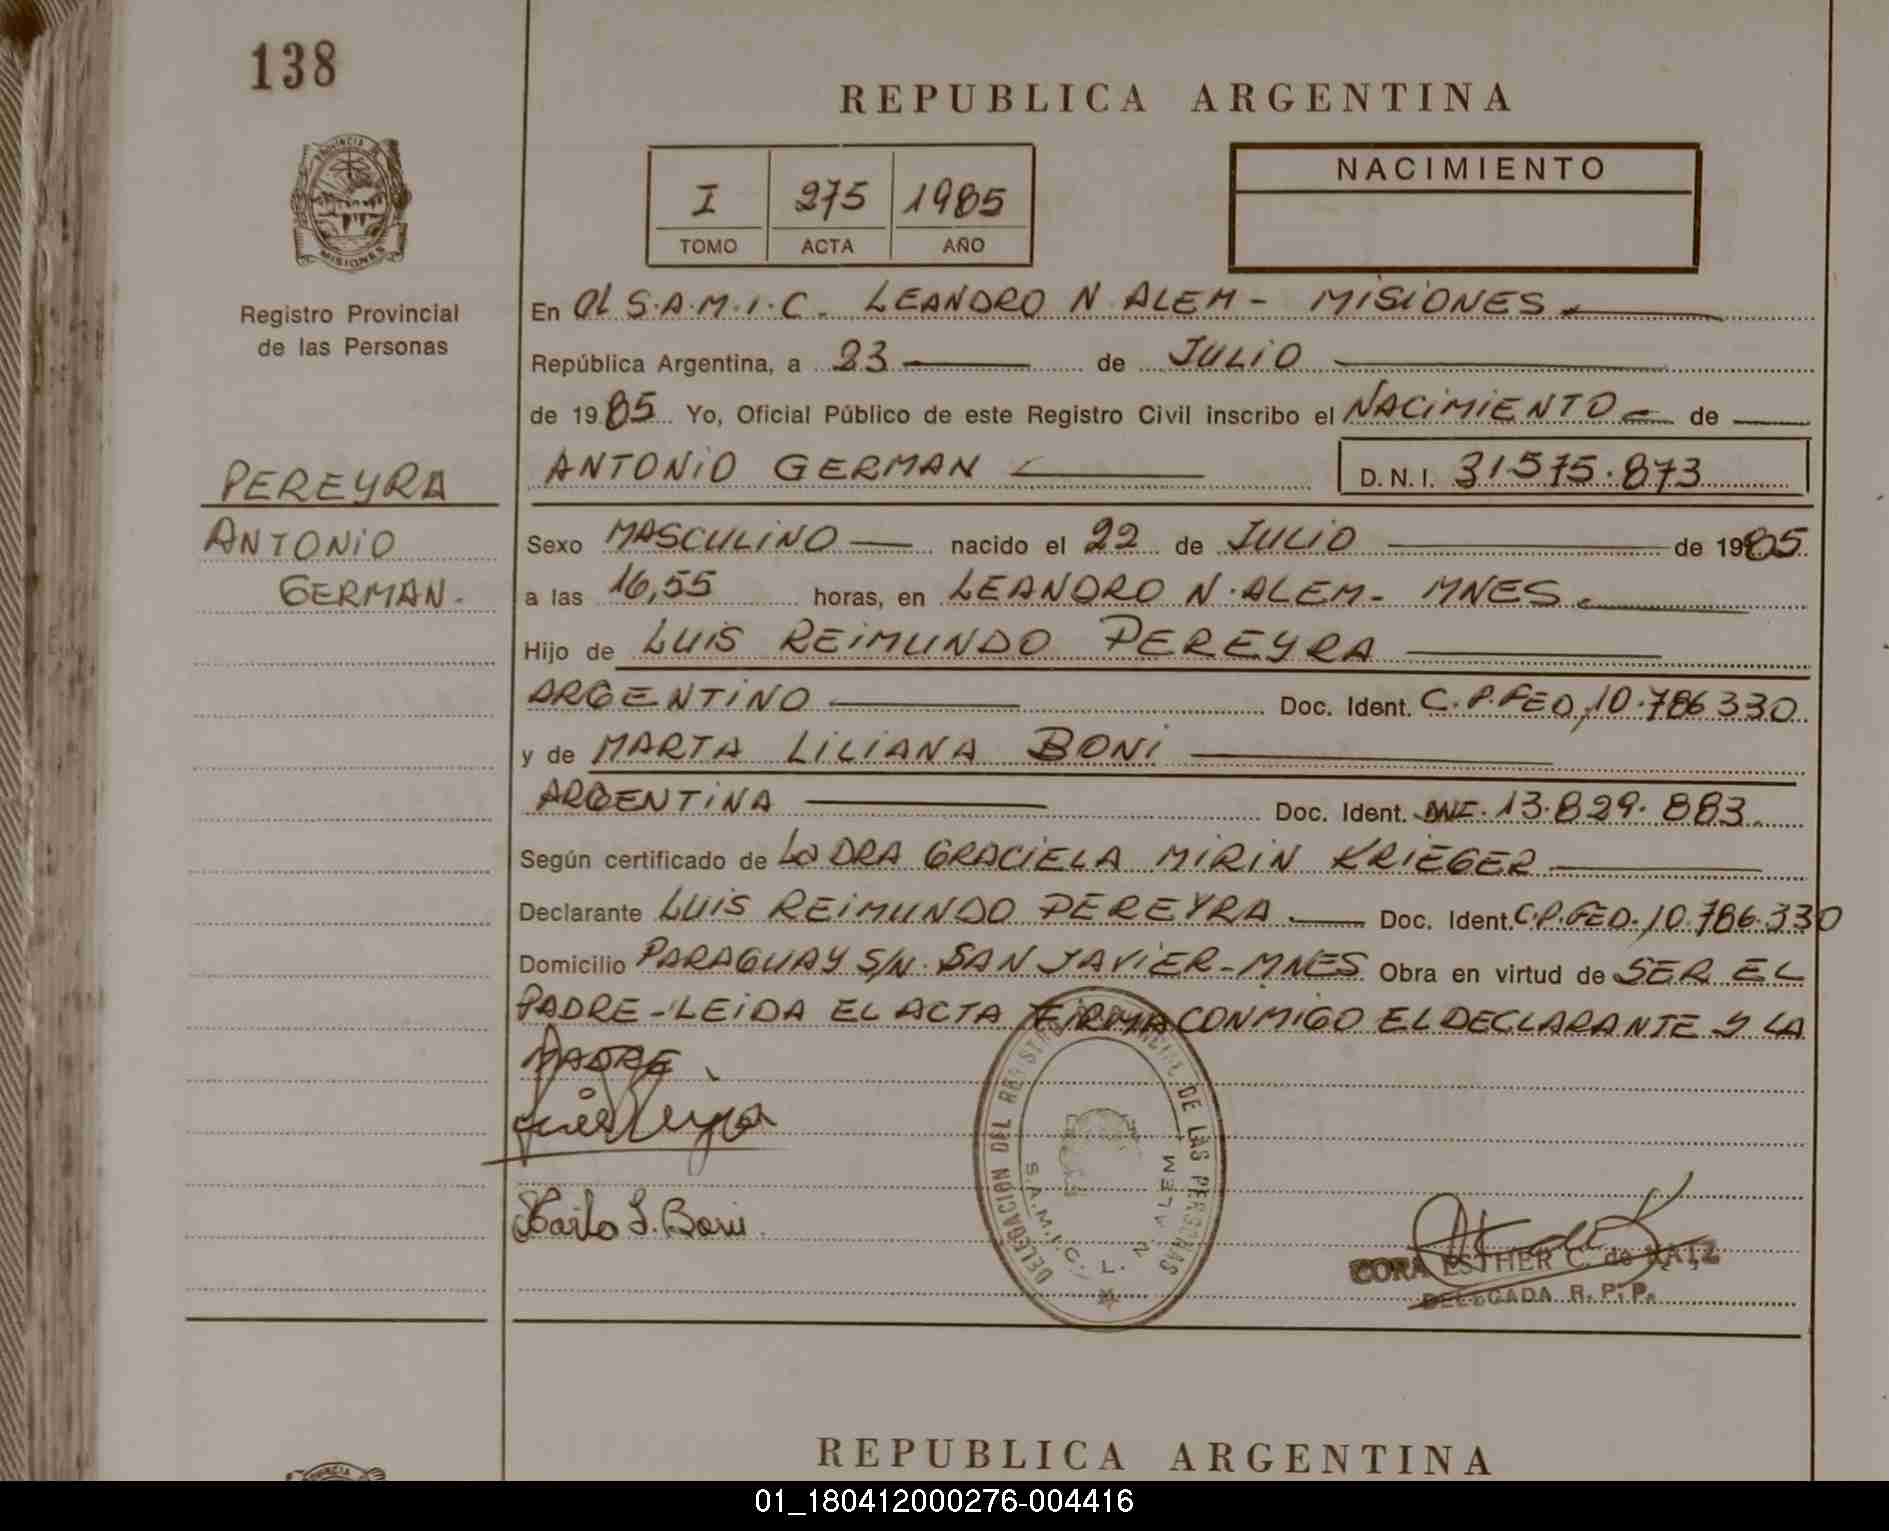 138
REPUBLICA ARGENTINA
PROVINCIA DE
MISIONES
Registro Provincial
de las Personas
I 275 1985
TOMO ACTA AÑO
NACIMIENTO
En el S.A.M.I.C. LEANDRO N ALEM - MISIONES
República Argentina, a 23 de JULIO
de 1985 Yo, Oficial Público de este Registro Civil inscribo el NACIMIENTO de
PEREYRA
ANTONIO GERMAN D.N.I. 31.575.873
ANTONIO
GERMAN.
Sexo MASCULINO nacido el 22 de JULIO de 1985
a las 16,55 horas, en LEANDRO N. ALEM - MNES
Hijo de LUIS REIMUNDO PEREYRA
ARGENTINO Doc. Ident. C.P.FED, 10.786 330
y de MARTA LILIANA BONI
ARGENTINA Doc. Ident. 13.829.883
Según certificado de La DRA GRACIELA MIRIN KRIEGER
Declarante LUIS REIMUNDO PEREYRA Doc. Ident. C.P.FED. 10.786.330
Domicilio PARAGUAY S/N. SAN JAVIER - MNES Obra en virtud de SER EL
PADRE - LEIDA EL ACTA FIRMA CONMIGO EL DECLARANTE Y LA
MADRE
DELEGACION DEL REGISTRO PROVINCIAL DE LAS PERSONAS
S.A.M.I.C. L. N. ALEM
Marta L. Boni
CORA ESTHER C. de KATZ
DELEGADA R. P. P.
REPUBLICA ARGENTINA
01_180412000276-004416